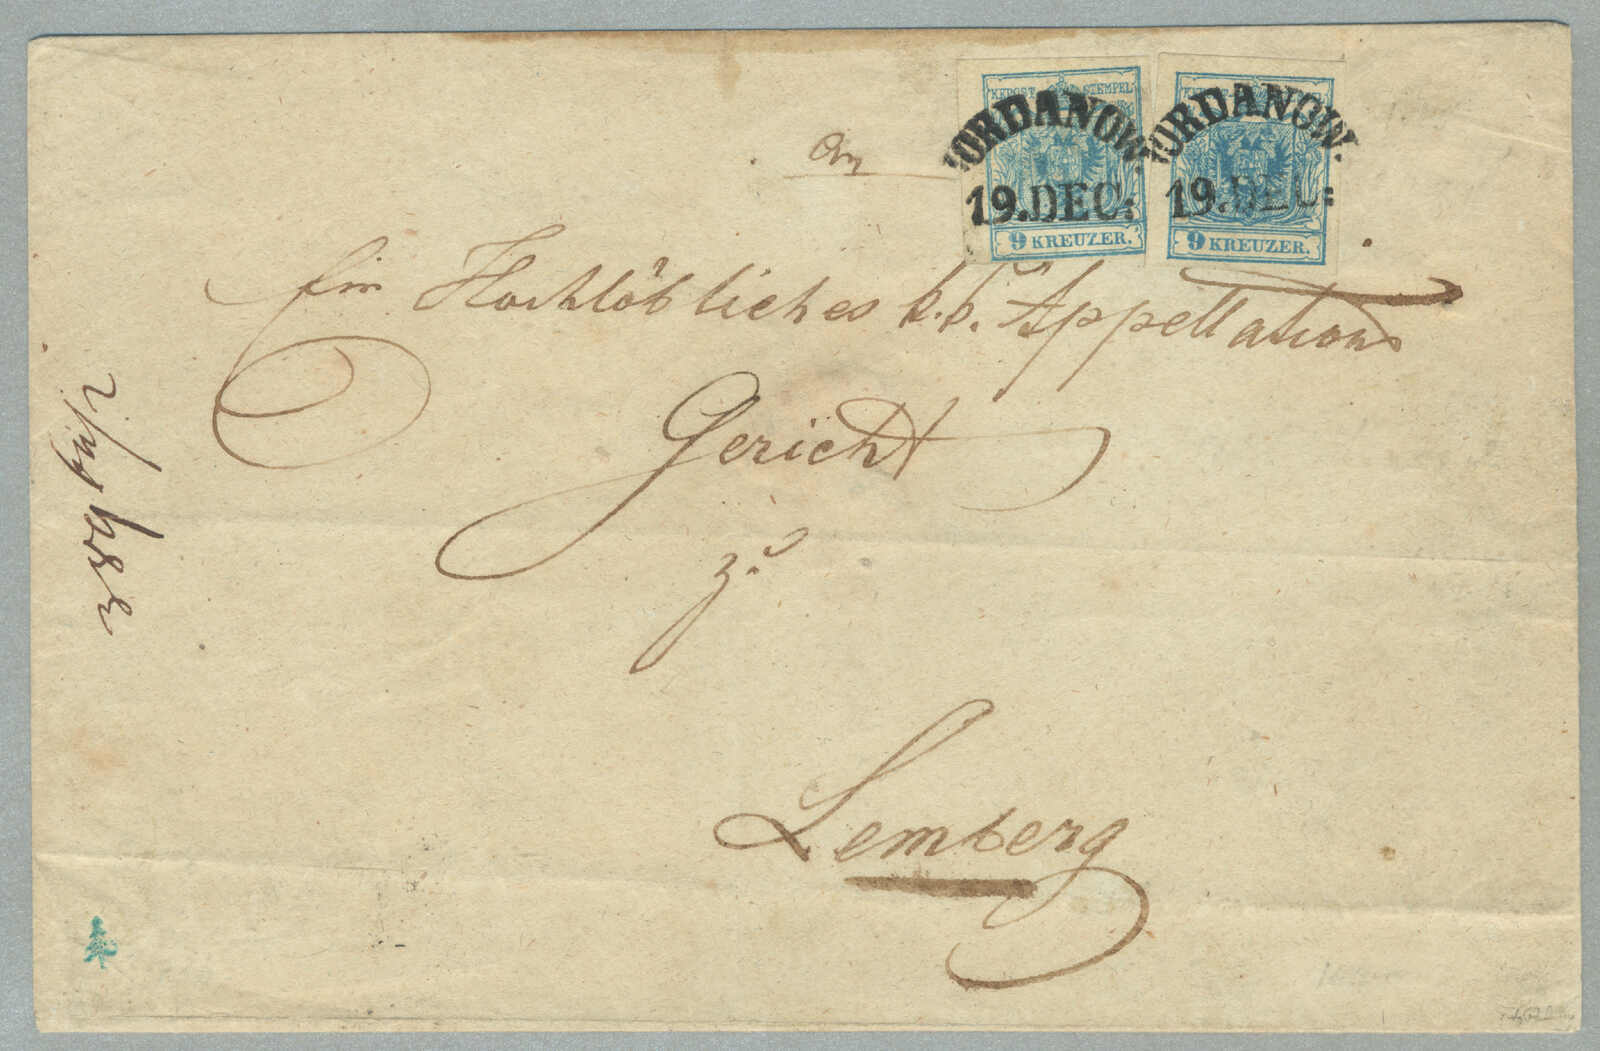 KKPOST-STEMPEL
JORDANOW.
19.DEC:
9 KREUZER.
JORDANOW.
19.DEC:
9 KREUZER.
An
Ein Hochlöbliches k.k. Appellations
Gericht
zu
Lemberg